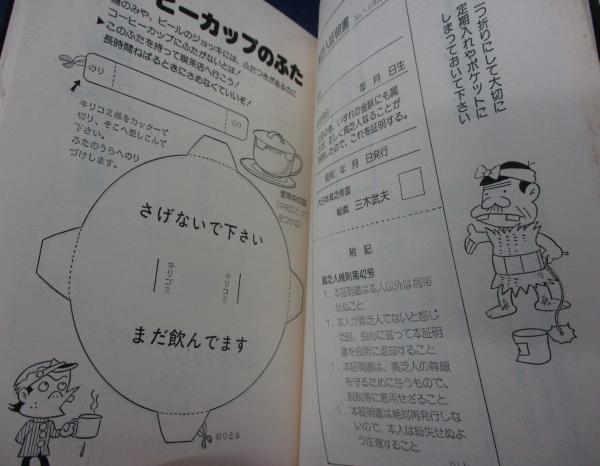 ーヒーカップのふた
湯のみや、ビールのジョッキには、ふたつきがあるのに
コーヒーカップにふたがないとは！
▶このふたを持って喫茶店へ行こう！
長時間ねばるときにさめなくていいぞ！
のり
のり
キリコミ線をカッターで
切り、そこへ差しこんで
下さい。
ふたのうらへのり
づけします。
使用中の図
さげないで下さい
キリコミ
キリコミ
まだ飲んでます
切りとる
二つ折りにして大切に
定期入れやポケットに
しまっておいて下さい
人証明書
年 月 日生
いずれの金脈にも属
さず、正しく貧乏人なることが
判明したので、これを証明する。
昭和 年 月 日発行
大日本貧乏帝国
総裁 三木武夫
附 記
貧乏人規則第42号
1．本証明書は本人以外は携帯
せぬこと
1．本人が貧乏人でないと感じ
た時、良心に誓って本証明
書を役所に返却すること
1．本証明書は、貧乏人の尊厳
を守るために与うもので、
脱税等に悪用せざること
1．本証明書は絶対再発行しな
いので、本人は紛失せぬよ
う注意すること